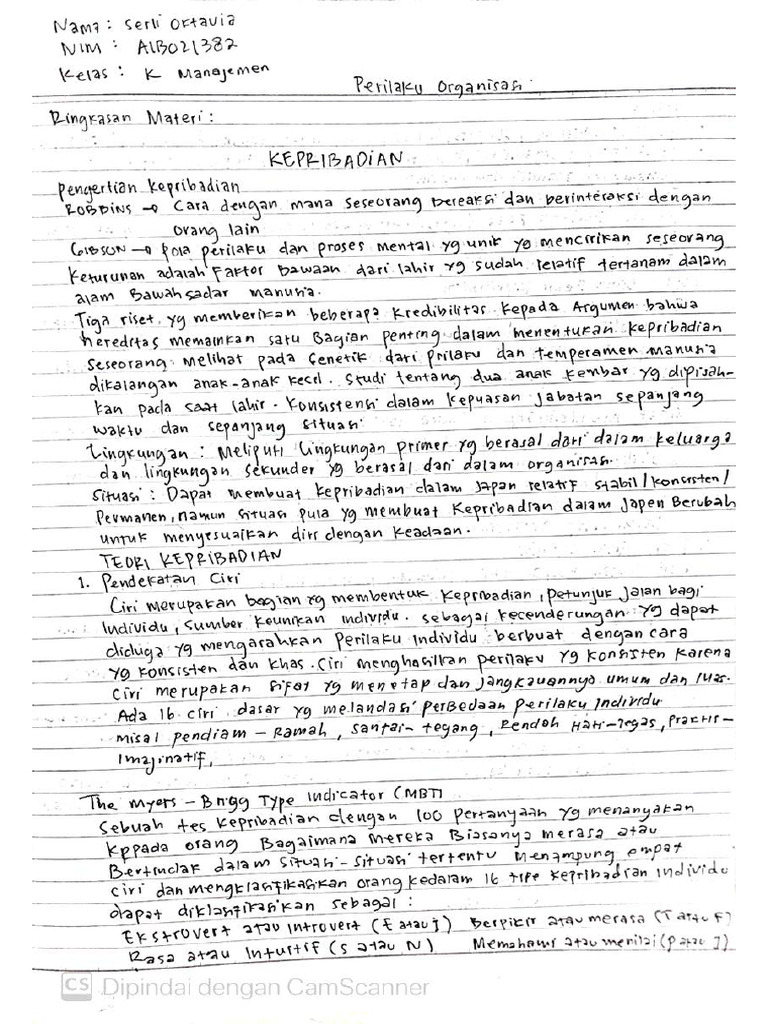 Nama : Serli Oktavia
NIM : A1B021382
Kelas : K Manajemen
Perilaku Organisasi
Ringkasan Materi :
KEPRIBADIAN
Pengertian Kepribadian
ROBBINS → Cara dengan mana seseorang bereaksi dan berinteraksi dengan
orang lain
GIBSON → Pola perilaku dan proses mental yg unik yg mencirikan seseorang
Keturunan adalah Faktor Bawaan dari lahir yg sudah relatif tertanam dalam
alam Bawah sadar manusia.
Tiga riset yg memberikan beberapa Kredibilitas Kepada Argumen bahwa
hereditas memainkan satu Bagian penting dalam menentukan kepribadian
seseorang. Melihat pada Genetik dari prilaku dan temperamen manusia
dikalangan anak-anak kecil. Studi tentang dua anak kembar yg dipisah-
kan pada saat lahir. Konsistensi dalam kepuasan jabatan sepanjang
waktu dan sepanjang situasi
Lingkungan : Meliputi lingkungan primer yg berasal dari dalam keluarga
dan lingkungan sekunder yg berasal dari dalam organisasi.
Situasi : Dapat membuat kepribadian dalam Japan relatif stabil/konsisten/
Permanen, namun situasi pula yg membuat Kepribadian dalam Japen Berubah
untuk menyesuaikan diri dengan Keadaan.
TEORI KEPRIBADIAN
1. Pendekatan Ciri
Ciri merupakan bagian yg membentuk Kepribadian, petunjuk jalan bagi
Individu, Sumber keunikan individu. sebagai kecenderungan yg dapat
diduga yg mengarahkan Perilaku Individu berbuat dengan cara
yg konsisten dan khas. Ciri menghasilkan perilaku yg konsisten karena
ciri merupakan sifat yg menetap dan jangkauannya umum dan luas.
Ada 16 ciri dasar yg melandasi perbedaan perilaku Individu
misal pendiam - Ramah, santai - tegang, Rendah Hati - Tegas, Praktis -
Imajinatif,
The Myers - Brigg Type Indicator (MBTI
Sebuah tes Kepribadian dengan 100 pertanyaan yg menanyakan
Kppada orang Bagaimana mereka Biasanya merasa atau
Bertindak dalam situasi-situasi tertentu Menampung empat
ciri dan mengklasifikasikan orang kedalam 16 tipe kepribadian Individu
dapat diklasifikasikan sebagai :
Ekstrovert atau Introvert (E atau I) Berpikir atau merasa (T atau F)
Rasa atau Intuitif (S atau N) Memahami atau menilai (P atau J)
CS Dipindai dengan CamScanner